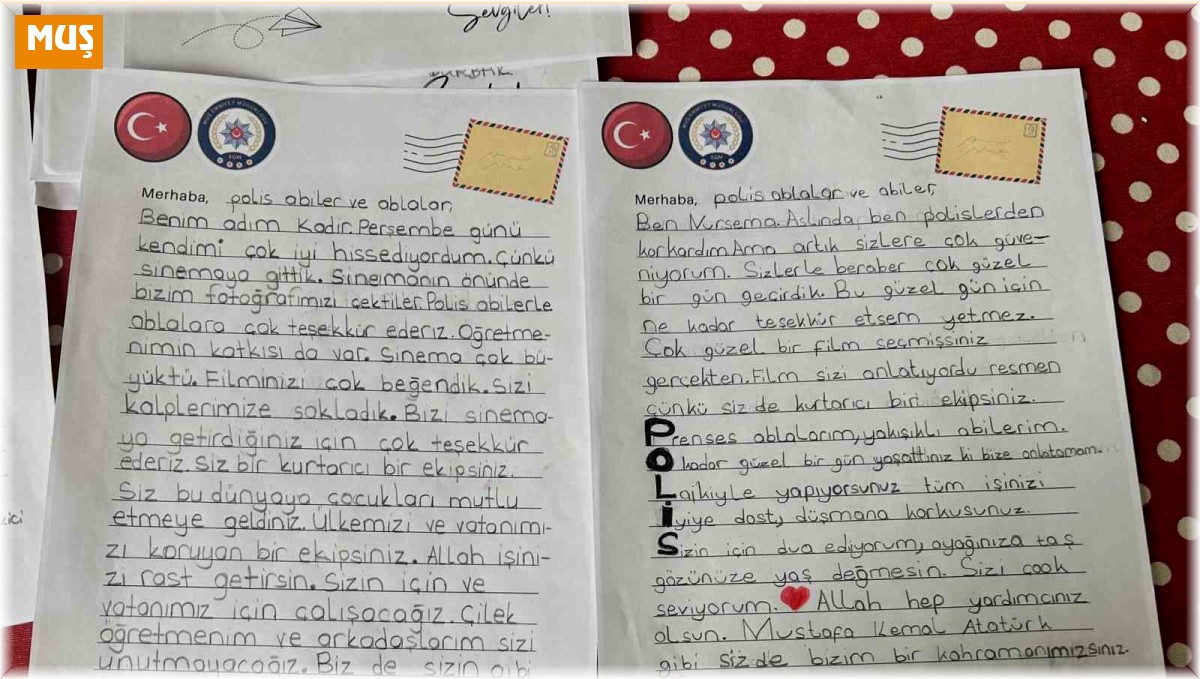 MUŞ
Sevgiler!
Merhaba, polis abiler ve ablalar,
Benim adım Kadir. Perşembe günü
kendimi çok iyi hissediyordum. Çünkü
sinemaya gittik. Sinemanın önünde
bizim fotoğrafımızı çektiler. Polis abilerle
ablalara çok teşekkür ederiz. Öğretme-
nimin katkısı da var. Sinema çok bü-
yüktü. Filminizi çok beğendik. Sizi
kalplerimize sakladık. Bizi sinema-
ya getirdiğiniz için çok teşekkür
ederiz. Siz bir kurtarıcı bir ekipsiniz.
Siz bu dünyaya çocukları mutlu
etmeye geldiniz. Ülkemizi ve vatanımı-
zı koruyan bir ekipsiniz. Allah işini-
zi rast getirsin. Sizin için ve
vatanımız için çalışacağız. Çilek
öğretmenim ve arkadaşlarım sizi
unutmayacağız. Biz de sizin gibi
EGM
Merhaba, polis ablalar ve abiler,
Ben Nursema. Aslında ben polislerden
korkardım Ama artık sizlere çok güve-
niyorum. Sizlerle beraber çok güzel
bir gün geçirdik. Bu güzel gün için
ne kadar teşekkür etsem yetmez.
Çok güzel bir film seçmişsiniz
gerçekten. Film sizi anlatıyordu resmen
çünkü siz de kurtarıcı biri ekipsiniz.
Prenses ablalarım, yakışıklı abilerim.
O kadar güzel bir gün yaşattınız ki bize anlatamam.
Laikiyle yapıyorsunuz tüm işinizi
İyiye dost, düşmana korkusunuz.
Sizin için dua ediyorum, ayağınıza taş
gözünüze yaş değmesin. Sizi çook
seviyorum. Allah hep yardımcınız
olsun. Mustafa Kemal Atatürk
gibi siz de bizim bir kahramanımızsınız.
EGM